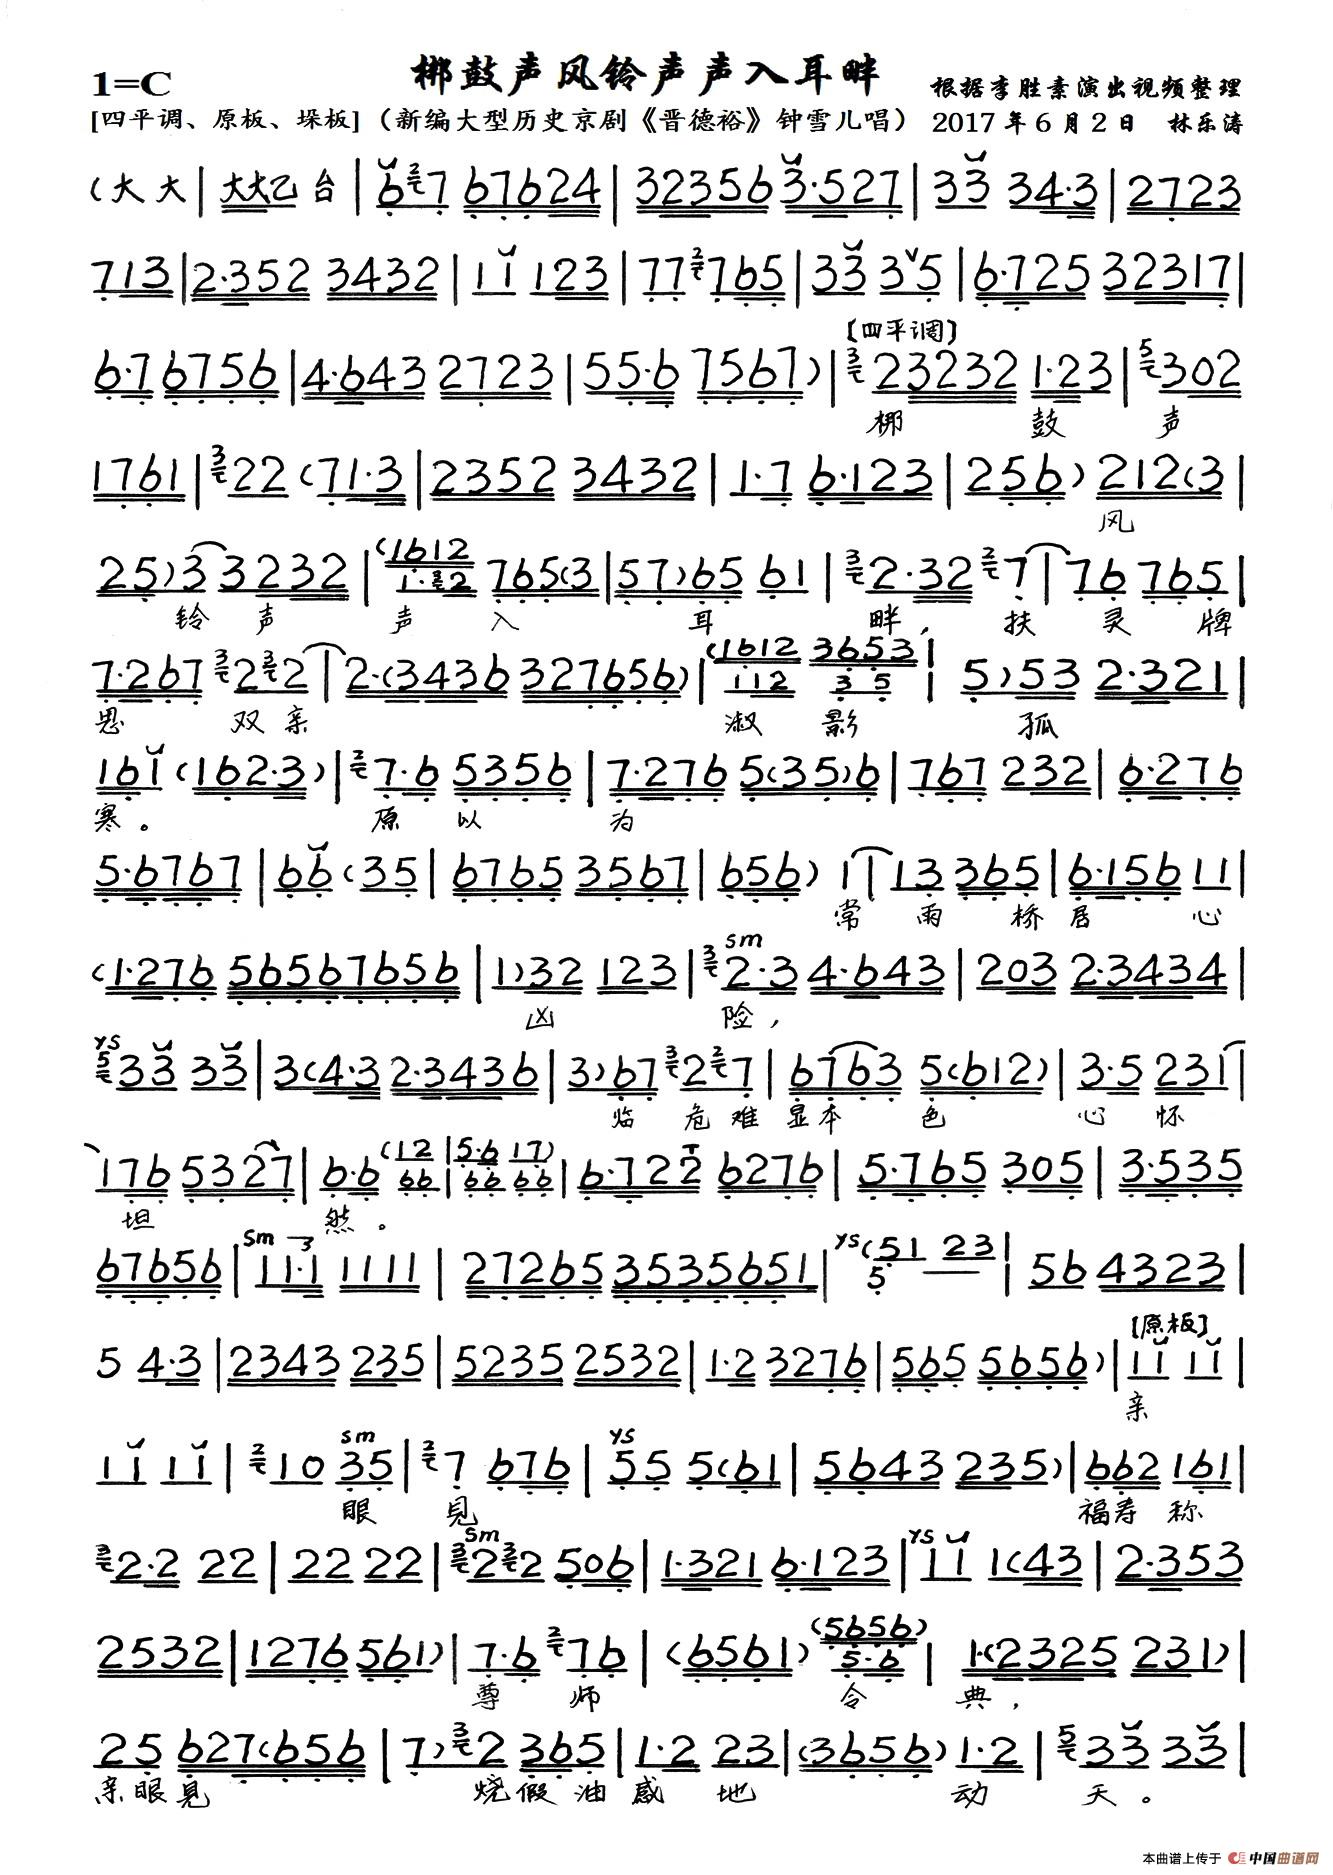 梆鼓声风铃声声入耳畔
1=C
根据李胜素演出视频整理
[四平调、原板、垛板]（新编大型历史京剧《晋德裕》钟雪儿唱） 2017年6月2日 林乐涛
(大大|大大乙台|6 2 7 67624|32356 3·527|33 34·3|2723
713|2·352 3432|11 123|77 2 765|33 3 5|6·725 32317|
[四平调]
6·7 6756|4·643 2723|55·6 7567)|3 23232 1·23|5 302
梆 鼓 声
1761|3 22(71·3|2352 3432|1·7 6·123|256)212(3|
风
25)3 3232|(1612 1·32 765(3|57)65 61|3 2·32 2 7|76 765|
铃声 声 入 耳 畔，扶 灵牌
7·267 3 2 3 2|2·(3436 327656)|(1612 3653 112 3 5|5)53 2·321|
思 双亲 淑 影 孤
161(162·3)|2 7·6 5356|7·276 5(35)6|767 232|6·276
寒。 原 以 为
5·6767|66(35|6765 3567|656)1|13 365|6·156 11|
常 雨 桥居 心
(1·276 56567656|1)32 123|3 sm 2·3 4·643|203 2·3434|
凶 险，
YS 5 33 33|3(4·3 2·3436|3)67 3 2 2 7|6763 5(612)|3·5 231|
临 危难显本 色 心 怀
176 5327|6·6 (12 66|5·6 17) 66 66|6·722 6276|5·765 305|3·535
坦 然。
67656|sm 3 11·1 1111|27265 3535651|YS (51 23 5 —|56 4323|
[原板]
5 4·3|2343 235|5235 2532|1·2 3276|565 5656)|11 11|
亲
11 11|2 10 sm 35|2 7 676|YS 55 5(61|5643 235)|662 161|
眼 见 福寿称
3 2·2 22|22 22|sm 3 2 3 2 506|1·321 6·123|YS 11 1(43|2·353
2532|1276 561)|7·6 2 76|(6561)(5656) 5·6|1·(2325 231)|
尊 师 令 典，
25 627(656|7)3 2 365|1·2 23|(3656)1·2|5 33 33|
亲眼见 烧假油感 地 动 天。
本曲谱上传于 中国曲谱网